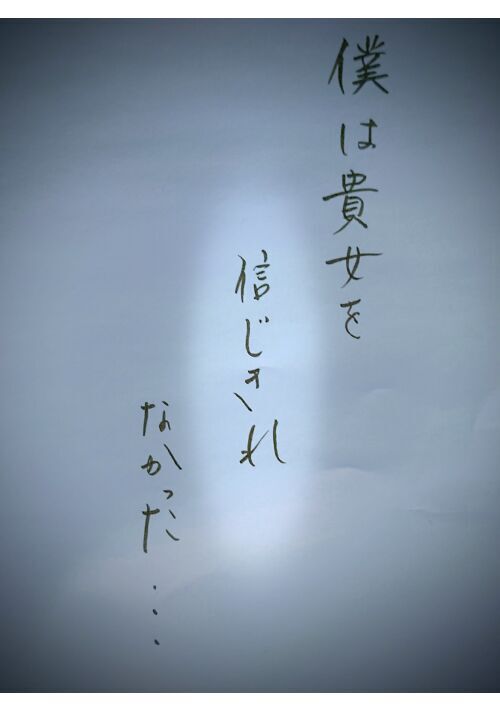 僕は貴女を
信じきれ
なかった…